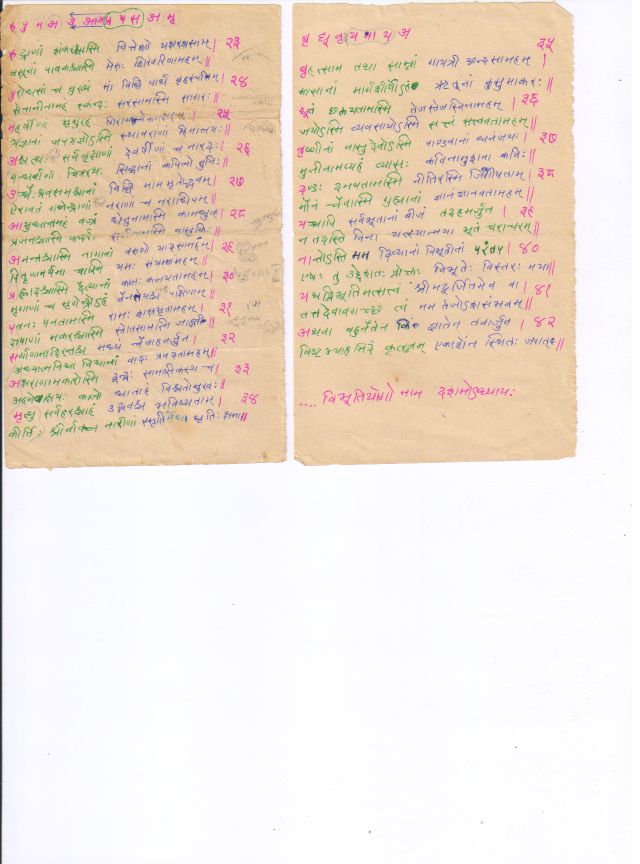 रु पु म अ उ आ प स अ मृ
रुद्राणां शंकरश्चास्मि वित्तेशो यक्षरक्षसाम् । २३
वसूनां पावकश्चास्मि मेरुः शिखरिणामहम् ॥
पुरोधसां च मुख्यं मां विद्धि पार्थ बृहस्पतिम् । २४
सेनानीनामहं स्कन्दः सरसामस्मि सागरः ॥
महर्षीणां भृगुरहं गिरामस्म्येकमक्षरम् । २५
यज्ञानां जपयज्ञोऽस्मि स्थावराणां हिमालयः ॥
अश्वत्थः सर्ववृक्षाणां देवर्षीणां च नारदः । २६
गन्धर्वाणां चित्ररथः सिद्धानां कपिलो मुनिः ॥
उच्चैःश्रवसमश्वानां विद्धि माममृतोद्भवम् । २७
ऐरावतं गजेन्द्राणां नराणां च नराधिपम् ॥
आयुधानामहं वज्रं धेनूनामस्मि कामधुक् । २८
प्रजनश्चास्मि कन्दर्पः सर्पाणामस्मि वासुकिः ॥
अनन्तश्चास्मि नागानां वरुणो यादसामहम् । २९
पितृणामर्यमा चास्मि यमः संयमतामहम् ॥
प्रह्लादश्चास्मि दैत्यानां कालः कलयतामहम् । ३०
मृगाणां च मृगेन्द्रोऽहं वैनतेयश्च पक्षिणाम् ॥
पवनः पवतामस्मि रामः शस्त्रभृतामहम् । ३१ राम
झषाणां मकरश्चास्मि स्रोतसामस्मि जाह्नवी ॥
सर्गाणामादिरन्तश्च मध्यं चैवाहमर्जुन । ३२
अध्यात्मविद्या विद्यानां वादः प्रवदतामहम् ॥
अक्षराणामकारोऽस्मि द्वन्द्वः सामासिकस्य च । ३३
अहमेवाक्षयः कालो धाताहं विश्वतोमुखः ॥
मृत्युः सर्वहरश्चाहं उद्भवश्च भविष्यताम् । ३४
कीर्तिः श्रीर्वाक्च नारीणां स्मृतिर्मेधा धृतिः क्षमा ॥
बृ द्यू वृ द य ना य अ
३५
बृहत्साम तथा साम्नां गायत्री छन्दसामहम् ।
मासानां मार्गशीर्षोऽहं ऋतूनां कुसुमाकरः ॥
द्यूतं छलयतामस्मि तेजस्तेजस्विनामहम् । ३६
जयोऽस्मि व्यवसायोऽस्मि सत्त्वं सत्त्ववतामहम् ॥
वृष्णीनां वासुदेवोऽस्मि पाण्डवानां धनंजयः । ३७
मुनीनामप्यहं व्यासः कविनामुशना कविः ॥
दण्डः दमयतामस्मि नीतिरस्मि जिगीषताम् । ३८
मौनं चैवास्मि गुह्यानां ज्ञानं ज्ञानवतामहम् ॥
यच्चापि सर्वभूतानां बीजं तदहमर्जुन । ३९
न तदस्ति विना यत्स्यान्मया भूतं चराचरम् ॥
नान्तोऽस्ति मम दिव्यानां विभूतीनां परंतप । ४०
एषः तु उद्देशतः प्रोक्तः विभूतेः विस्तरः मया ॥
यद्यद्विभूतिमत्सत्त्वं श्रीमदूर्जितमेव वा । ४१
तत्तदेवावगच्छ त्वं मम तेजोंऽशसंभवम् ॥
अथवा बहुनैतेन किं ज्ञातेन तवार्जुन । ४२
विष्टभ्याहमिदं कृत्स्नम् एकांशेन स्थितः जगत् ॥
.... विभूतियोगो नाम दशमोऽध्यायः